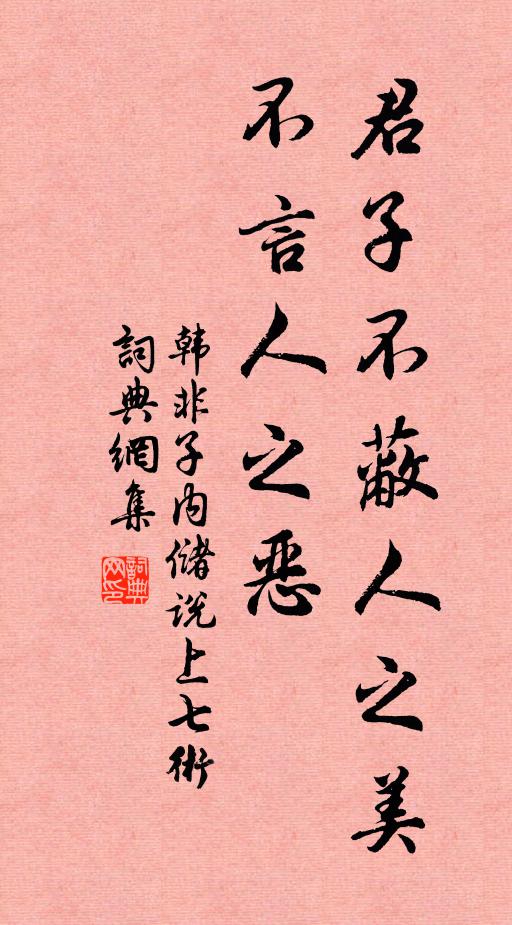 君子不蔽人之美
不言人之恶
韩非子内儲说上七術
詞典網集
詞典网印